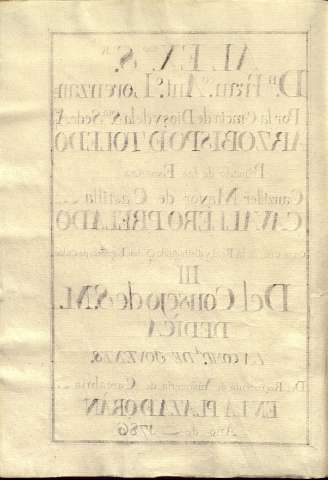 AL EX.mo S.r
D.n Fran.co Ant.o Lorenzan
Por la Gracia de Dios y de la S.ta Sede A
ARZOBISPO D TOLEDO
Primado de las Españas
Canciller Mayor de Castilla
CAVALLERO PRELADO
III
Del Consejo de S.M.
DEDICA
LA COMP.a DE JOVENES
Del Regimiento de Infanteria de Cantabria
EN LA PLAZA D ORAN
Año de 1786